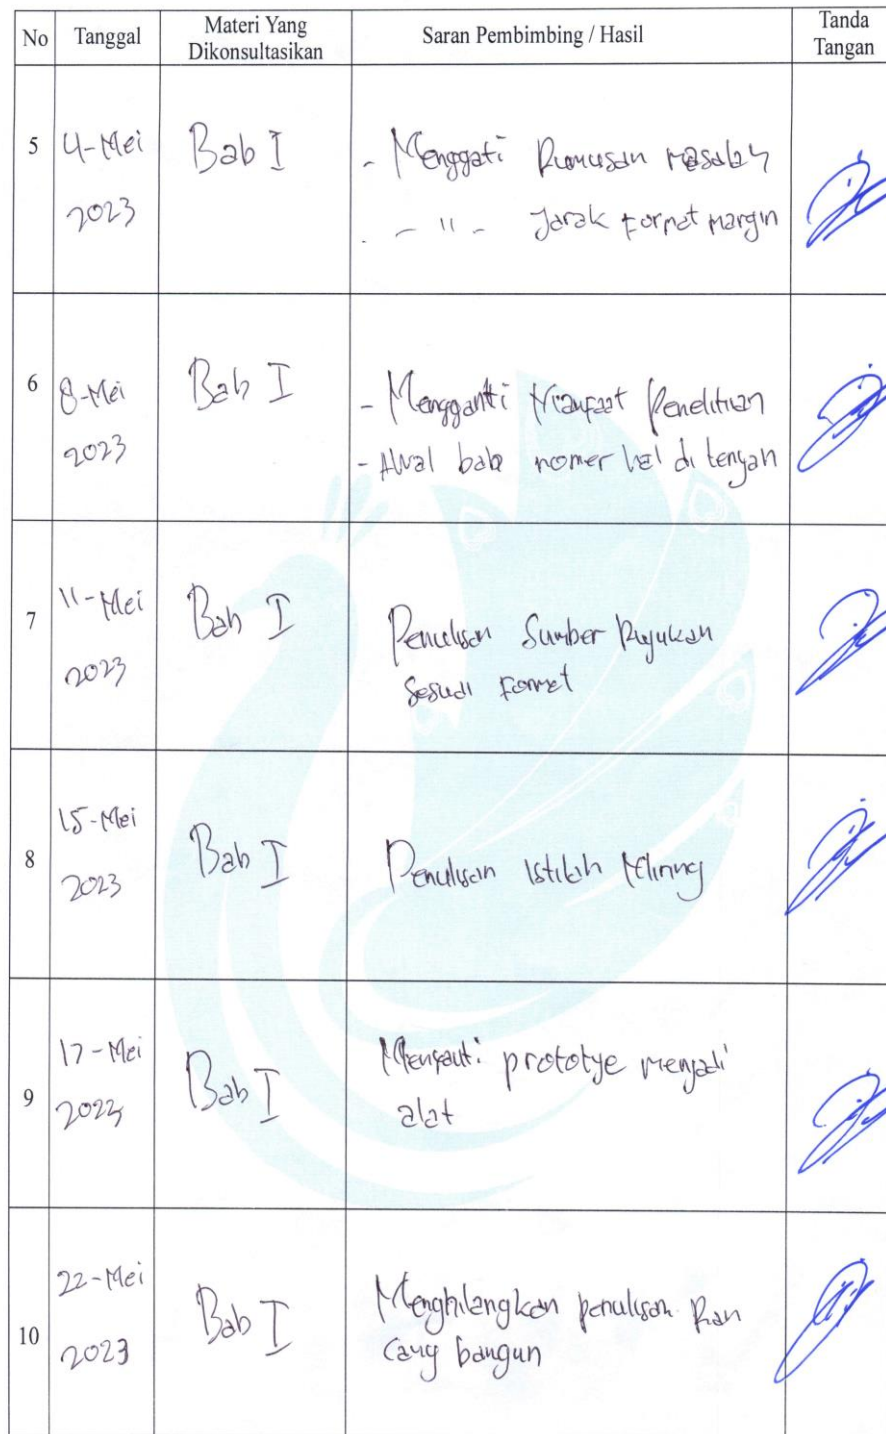 No Tanggal Materi Yang Dikonsultasikan Saran Pembimbing / Hasil Tanda Tangan
5 4-Mei Bab I - Menggati Rumusan masalah
2023 - - " - Jarak format margin
6 8-Mei Bab I - Mengganti Manfaat Penelitian
2023 - Awal bab nomer hal di tengah
7 11-Mei Bab I Penulisan Sumber Rujukan
2023 Sesuai Format
8 15-Mei Bab I Penulisan Istilah Miring
2023
9 17-Mei Bab I prototye menjadi
alat
10 22-Mei Bab I Menghilangkan penulisan Ran
2023 cang bangun